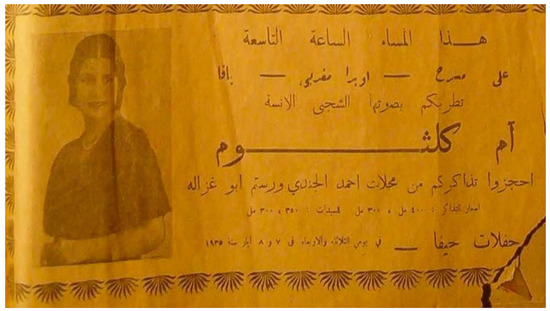 هـذا المساء الساعة التاسعة
على مسرح — اوبرا مغربي — يافا
تطربكم بصوتها الشجي الانسة
أم كلثـــــوم
احجزوا تذاكركم من محلات احمد الجندي ورستم ابو غزاله
اسعار التذاكر : ٤٠٠ مل و ٣٠٠ مل للسيدات : ٣٥٠ و ٣٠٠ مل
حفلات حيفا — في يومي الثلاثاء والاربعاء في ٧ و ٨ ايار سنة ١٩٣٥